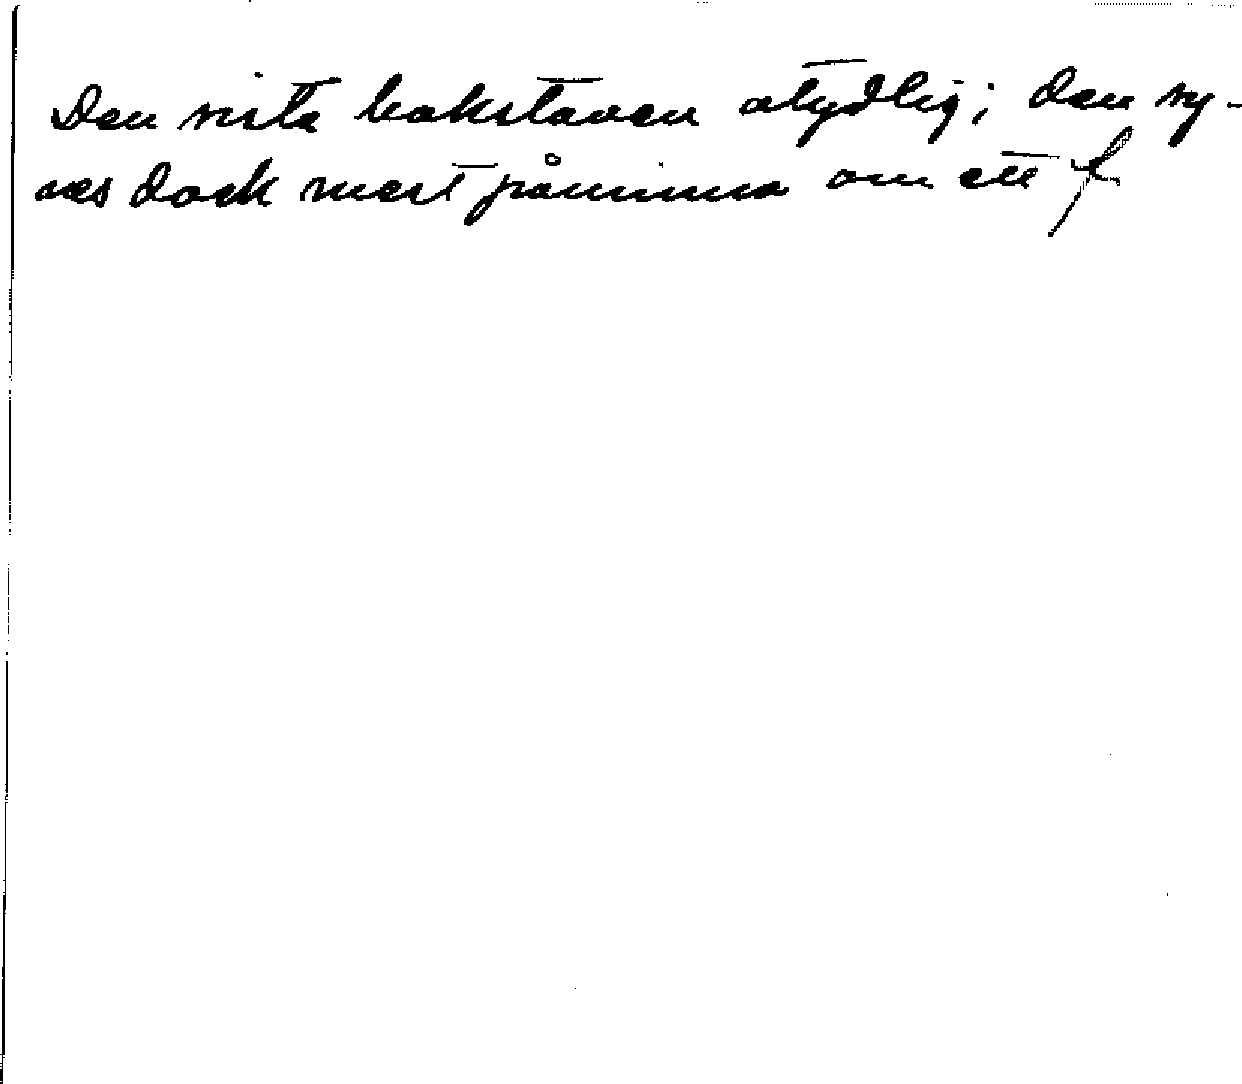 Den sista bokstaven otydlig; den sy-
nes dock mest påminna om ett f